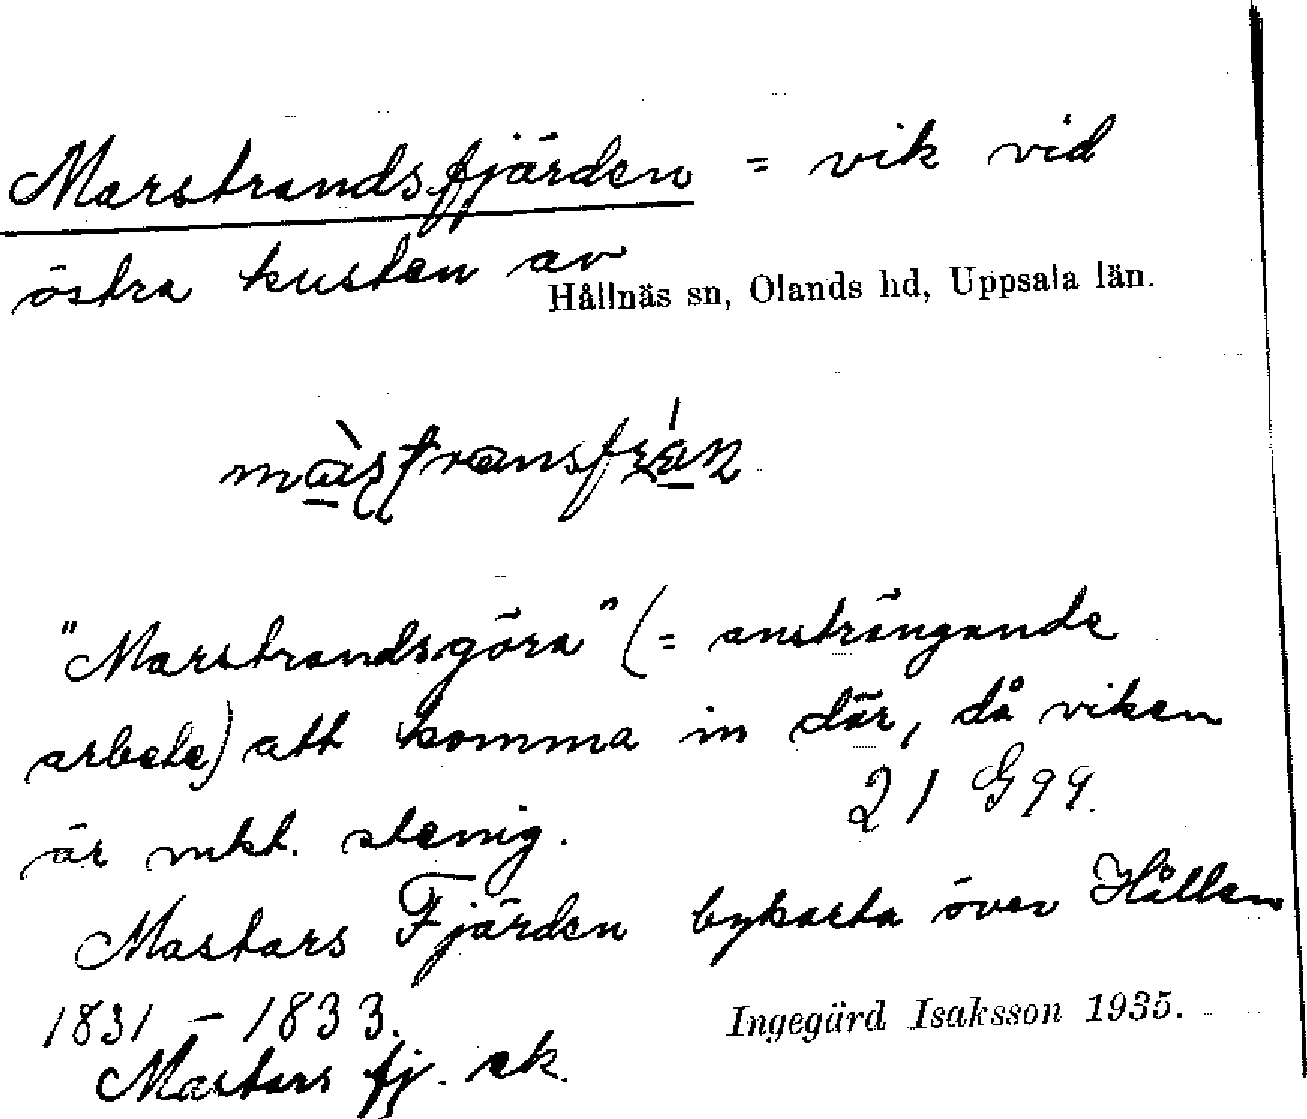 Marstrandsfjärden = vik vid
östra kusten av
Hållnäs sn, Olands hd, Uppsala län.
"Marstrandsgöra" (= ansträngande
arbete) att komma in där, då viken
är mkt. stenig.
21 G 99.
Mastars Fjärden bykarta över Hållen
1831 – 1833.
Ingegärd Isaksson 1935.
Mastars fj. ek.